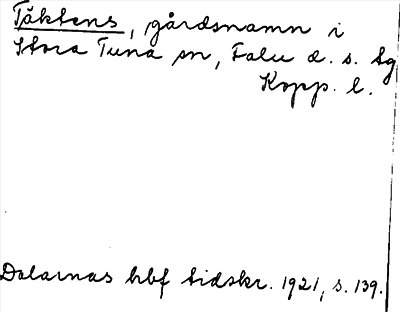 Täktens, gårdsnamn i
Stora Tuna sn, Falu d. s. tg
Kopp. l.
Dalarnas hbf tidskr. 1921, s. 139.